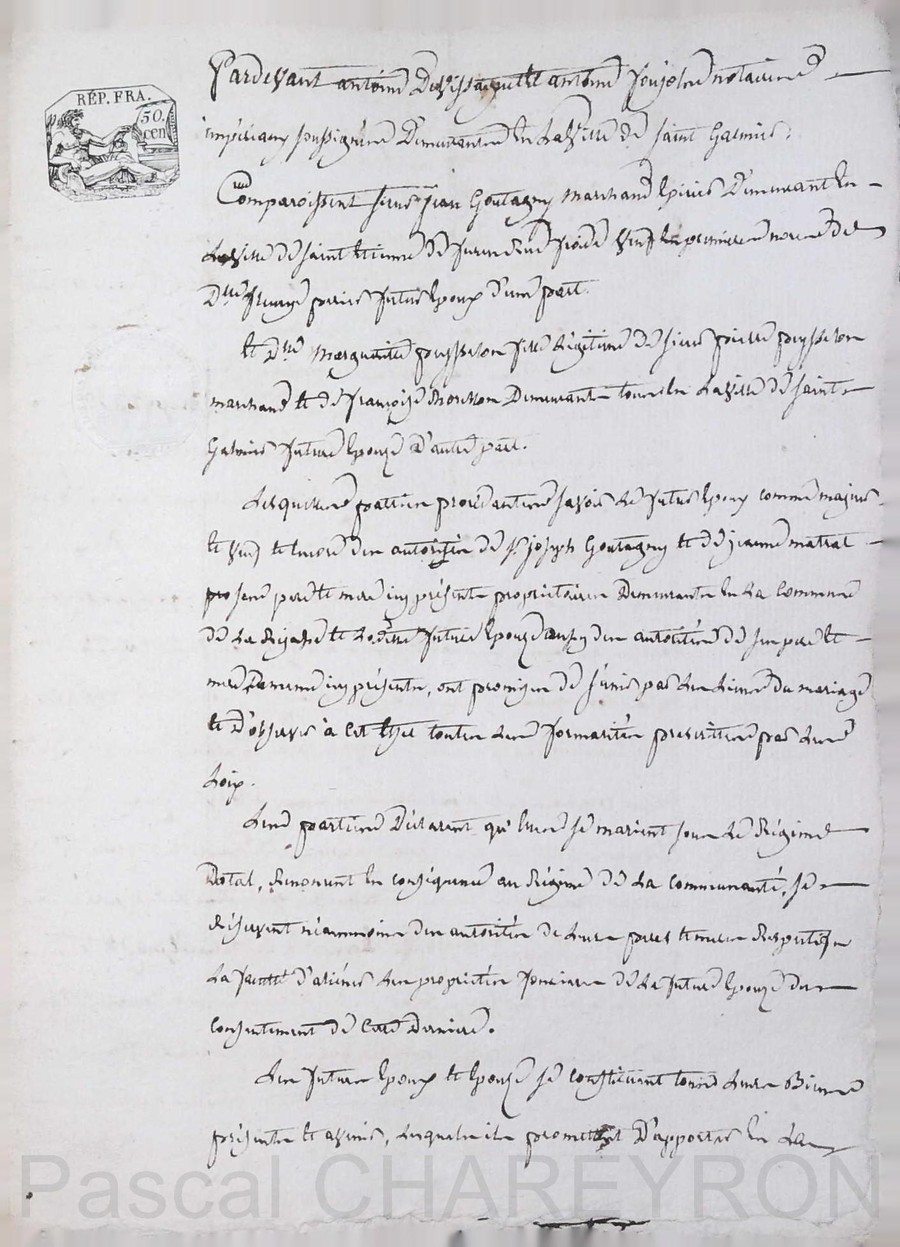 RÉP. FRA.
50.
cen
Pardevant antoine et antoine notaires
impériaux soussignés Demeurants en La Ville de Saint Galmier;
Comparoissent sieur jean Goutagny Marchand Epicier Demeurant En
La Ville de Saint Etienne de furan Rue froide veuf En premieres noces de
Dlle perrier futur Epoux d'une part.
Et Dlle Marguerite peysselon fille Légitime de sieur pierre peysselon
marchand Et de françoise Demeurants tous En La Ville de Saint
Galmier future Epouze d'autre part.
Lesquelles parties procédantes savoir Le futur Epoux comme majeur
Et veuf Et encore des autorités de sr joseph Goutagny Et de jeanne matrat
ses pere Et mere icy présents propriétaires Demeurants En La Commune
de La Et Ladite future Epouze aussy des autorités de ses pere Et
mere icy présents, ont promis de s'unir par Les Liens du mariage
Et d'observer à cet Effet toutes Les formalités prescrittes par Les
Loix.
Les parties Déclarent qu'Elles se marient sous Le Régime
Dotal, Renoncent En conséquence au Régime de La Communauté, se
Réservent néanmoins des autorités de Leurs peres Et meres Respectifs
La faculté d'aliéner Les propriétés foncieres de La future Epouze du
consentement de Cette Derniere.
Les futurs Epoux Et Epouze se constituent tous Leurs Biens
présents Et avenir, Lesquels ils promettent D'apporter En La
Pascal CHAREYRON